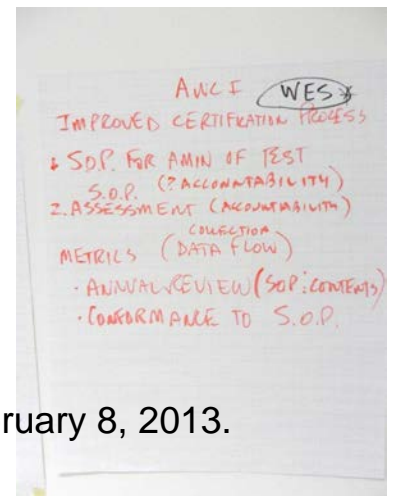 ANCI WES*
IMPROVED CERTIFICATION PROCESS
1 S.O.P. FOR AMIN OF TEST
S.O.P. (? ACCOUNTABILITY)
2. ASSESSMENT (ACCOUNTABILITY)
COLLECTION
METRICS (DATA FLOW)
· ANNUAL REVIEW (SOP: CONTENTS)
· CONFORMANCE TO S.O.P.
ruary 8, 2013.